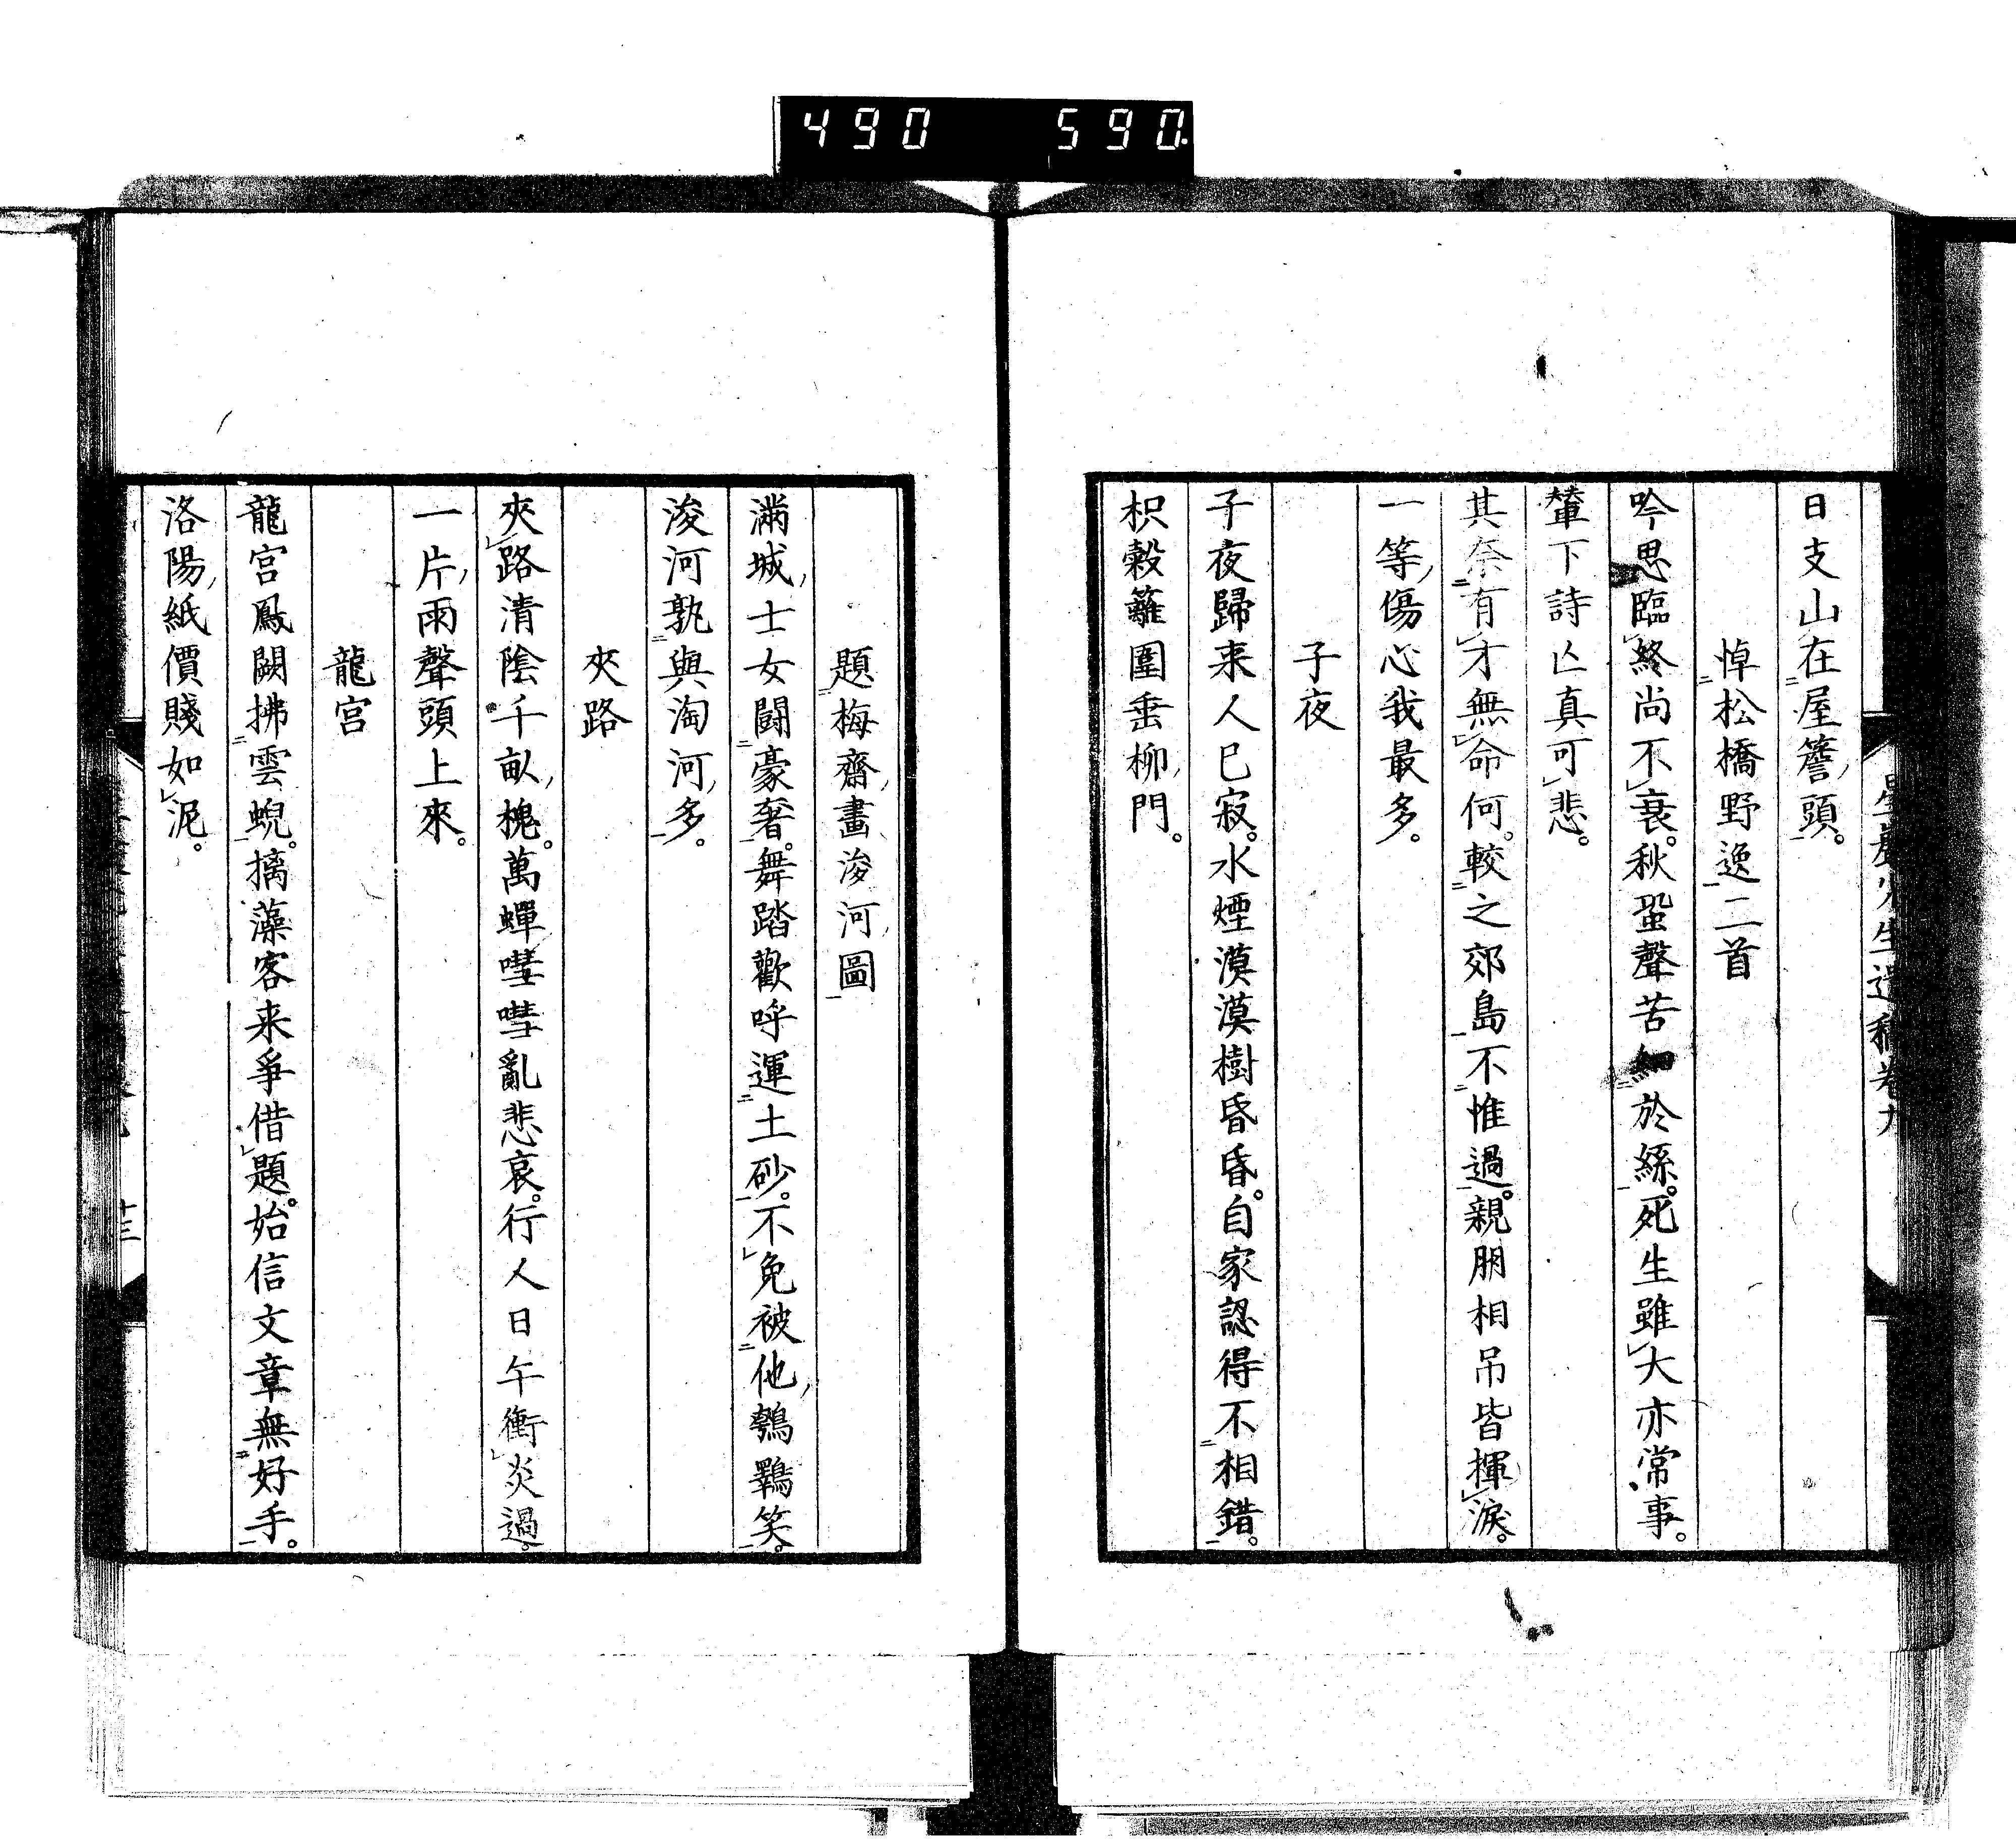 490 590
日支山在屋簷頭。
悼松橋野逸二首
吟思臨終尚不衰。秋蛩聲苦細於絲。死生雖大亦常事。
輦下詩亾真可悲。
其奈有才無命何。較之郊島不惟過。親朋相吊皆揮淚。
一等傷心我最多。
子夜
子夜歸来人已寂。水煙漠漠樹昏昏。自家認得不相錯。
枳穀籬圍垂柳門。
題梅齋畫浚河圖
滿城士女鬪豪奢。舞踏歡呼運土砂。不免被他鶚鸅笑。
浚河孰與淘河多。
夾路
夾路清陰千畝槐。萬蟬嘒嘒亂悲哀。行人日午衝炎過。
一片雨聲頭上來。
龍宮
龍宮鳳闕拂雲蜺。摛藻客来爭借題。始信文章無好手。
洛陽紙價賤如泥。
十三